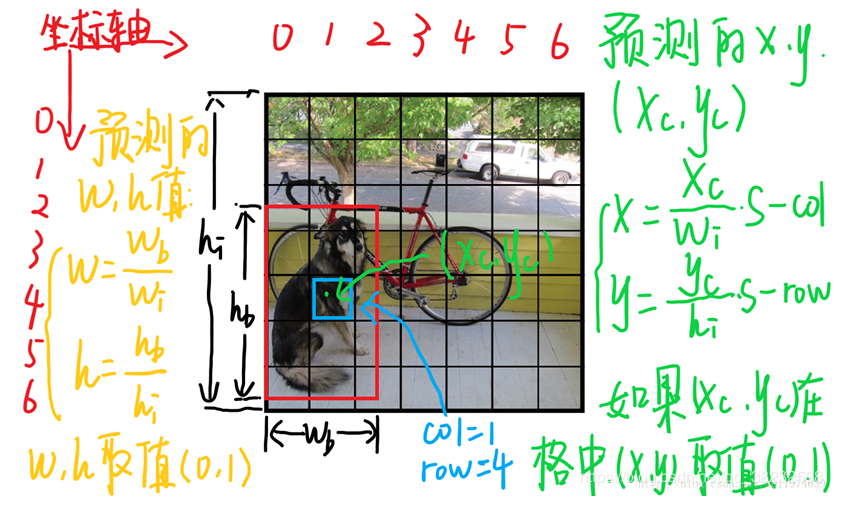 坐标轴
0 1 2 3 4 5 6
0
1
2
3
4
5
6
预测的
W,h值:
w=wb/wi
h=hb/hi
w,h取值(0,1)
hi
hb
wb
(xc,yc)
col=1
row=4
预测的x.y.
(xc,yc)
x=xc/wi·S-col
y=yc/hi·S-row
如果(xc,yc)在
格中(x,y)取值(0,1)